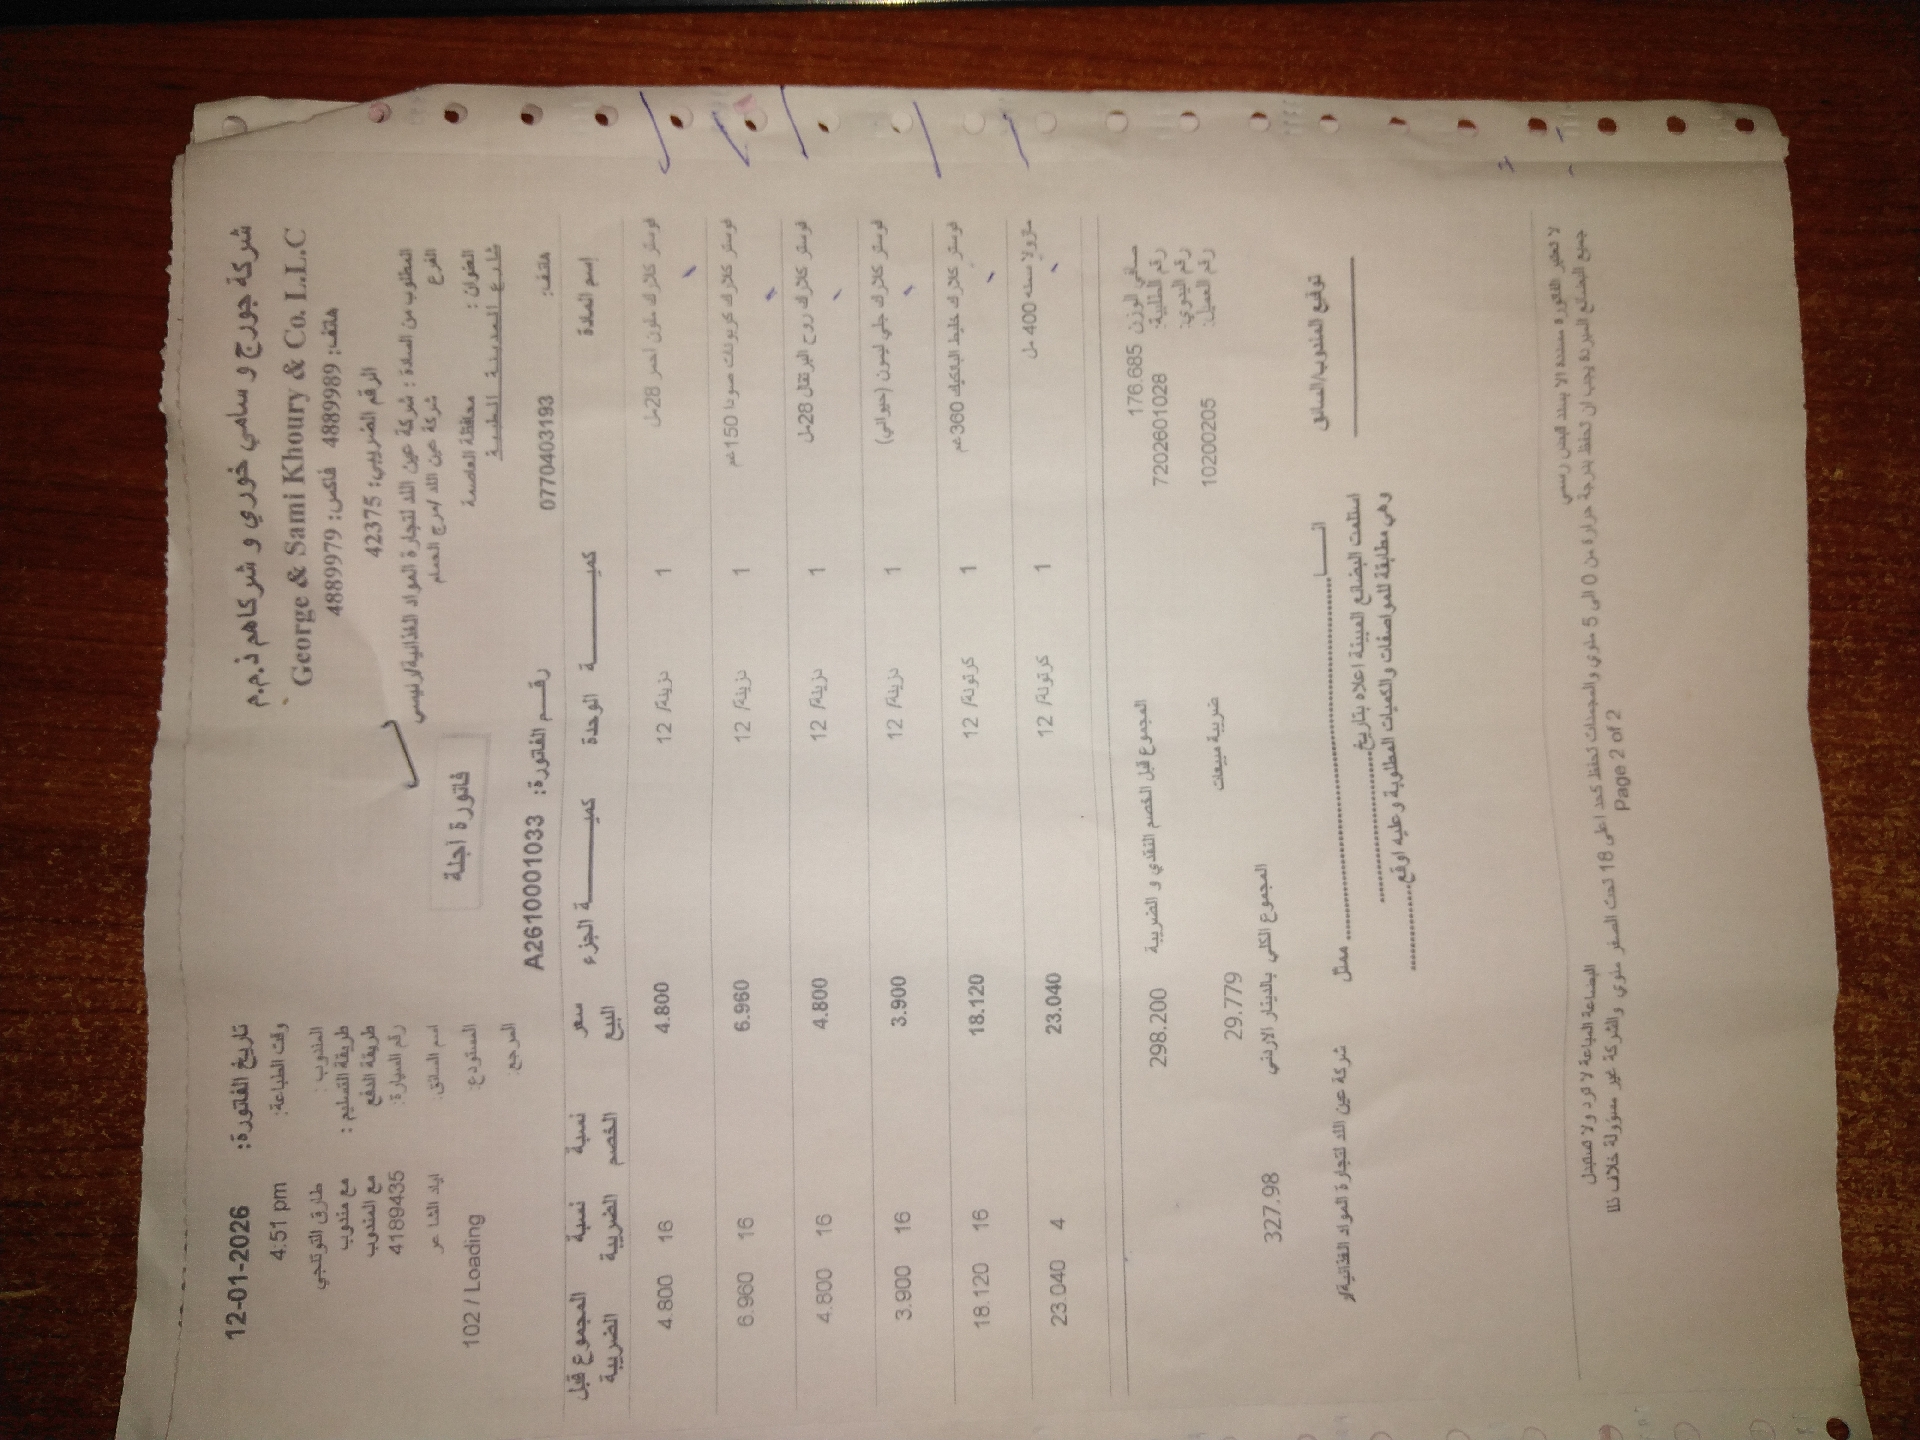 شركة جورج و سامي خوري و شركاهم ذ.م.م
George & Sami Khoury & Co. L.L.C
هاتف: 4889989 فاكس: 4889979
الرقم الضريبي: 42375
المطلوب من السادة : شركة عين اللد لتجارة المواد الغذائية/رئيسي
الفرع شركة عين اللد /مرج الحمام
العنوان : محافظة العاصمة
شارع المدينة الطبية
هاتف: 0770403193
فاتورة اجلة
رقم الفاتورة: A2610001033
تاريخ الفاتورة: 12-01-2026
وقت الطباعة: 4.51 pm
المندوب : طارق التوتنجي
طريقة التسليم : مع مندوب
طريقة الدفع مع المندوب
رقم السيارة: 4189435
اسم السائق: اياد الشاعر
المستودع: 102 / Loading
المرجع:
إسم المادة كمية الوحدة كمية الجزء سعر البيع نسبة الخصم نسبة الضريبة المجموع قبل الضريبة
فوستر كلارك ملون احمر 28مل 1 دزينة/ 12 4.800 16 4.800
فوستر كلارك كربونات صودا 150غم 1 دزينة/ 12 6.960 16 6.960
فوستر كلارك روح البرتقال 28مل 1 دزينة/ 12 4.800 16 4.800
فوستر كلارك جلي ليمون (حيواني) 1 دزينة/ 12 3.900 16 3.900
فوستر كلارك خليط البانكيك 360غم 1 كرتونة/ 12 18.120 16 18.120
400 مل 1 كرتونة/ 12 23.040 4 23.040
صافي الوزن 176.685
رقم الطلبية: 7202601028
رقم اليدوي:
رقم العميل: 10200205
المجموع قبل الخصم النقدي و الضريبة 298.200
ضريبة مبيعات 29.779
المجموع الكلي بالدينار الاردني 327.98
توقيع المندوب/السائق
انـــا ........ ممثل شركة عين اللد لتجارة المواد الغذائية/ر
استلمت البضائع المبينة اعلاه بتاريخ........
وهي مطابقة للمواصفات والكميات المطلوبة و عليه اوقع........
لا تعتبر الفاتورة مسددة الا بسند قبض رسمي
البضاعة المباعة لا ترد ولا تستبدل
جميع البضائع المبردة يجب ان تحفظ بدرجة حرارة من 0 الى 5 مئوي والمجمدات تحفظ كحد اعلى 18 تحت الصفر مئوي والشركة غير مسؤولة خلاف ذلك
Page 2 of 2